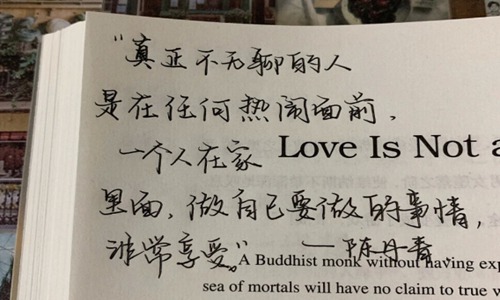 “真正不无聊的人
是在任何热闹面前，
一个人在家
Love Is Not a
里面，做自己要做的事情，
非常享受。”——陈丹青
A Buddhist monk without having exp
sea of mortals will have no claim to true